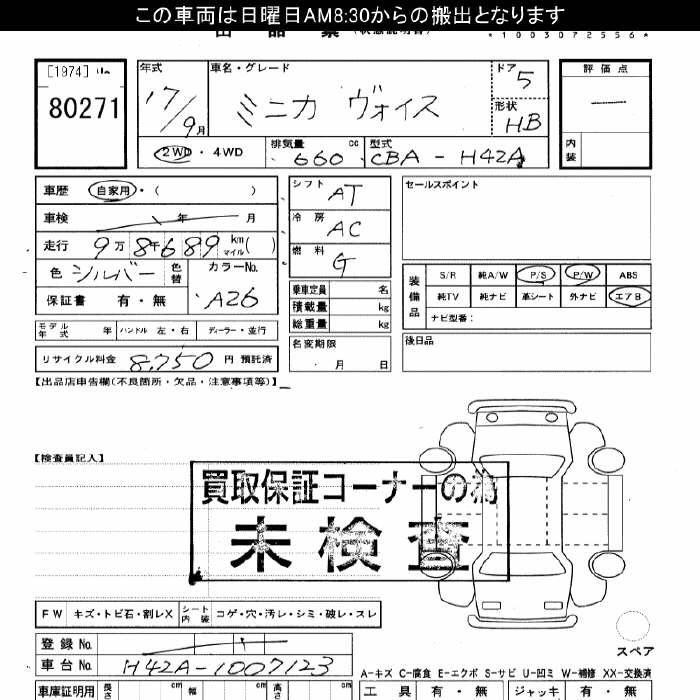 この車両は日曜日AM8:30からの搬出となります
*1003072556*
[1974]
80271
年式 車名・グレード ドア 5 評価点
17/9月 ミニカ ヴォイス 形状 HB
2WD・4WD 排気量 660 cc 型式 CBA-H42A 内装
車歴 自家用・( ) シフト AT セールスポイント
車検 年 月 冷房 AC
走行 9万8千689 km マイル( ) 燃料 G
色 シルバー 色替 カラーNo. A26
保証書 有・無
乗車定員 名
積載量 kg
総重量 kg
装備品 S/R 純A/W P/S P/W ABS
純TV 純ナビ 革シート 外ナビ エアB
ナビ型番:
モデル年式 年 ハンドル 左・右 ディーラー・並行
名変期限 月 日
後日品
リサイクル料金 8,750 円 預託済
【出品店申告欄(不良箇所・欠品・注意事項等)】
【検査員記入】
買取保証コーナーの為
未検査
FW キズ・トビ石・割レX シート内装 コゲ・穴・汚レ・シミ・破レ・スレ
登録No.
車台No. H42A-1007123
スペア
A-キズ C-腐食 E-エクボ S-サビ U-凹ミ W-補修 XX-交換済
車庫証明用 長さ cm 幅 cm 高さ cm 工具 有・無 ジャッキ 有・無